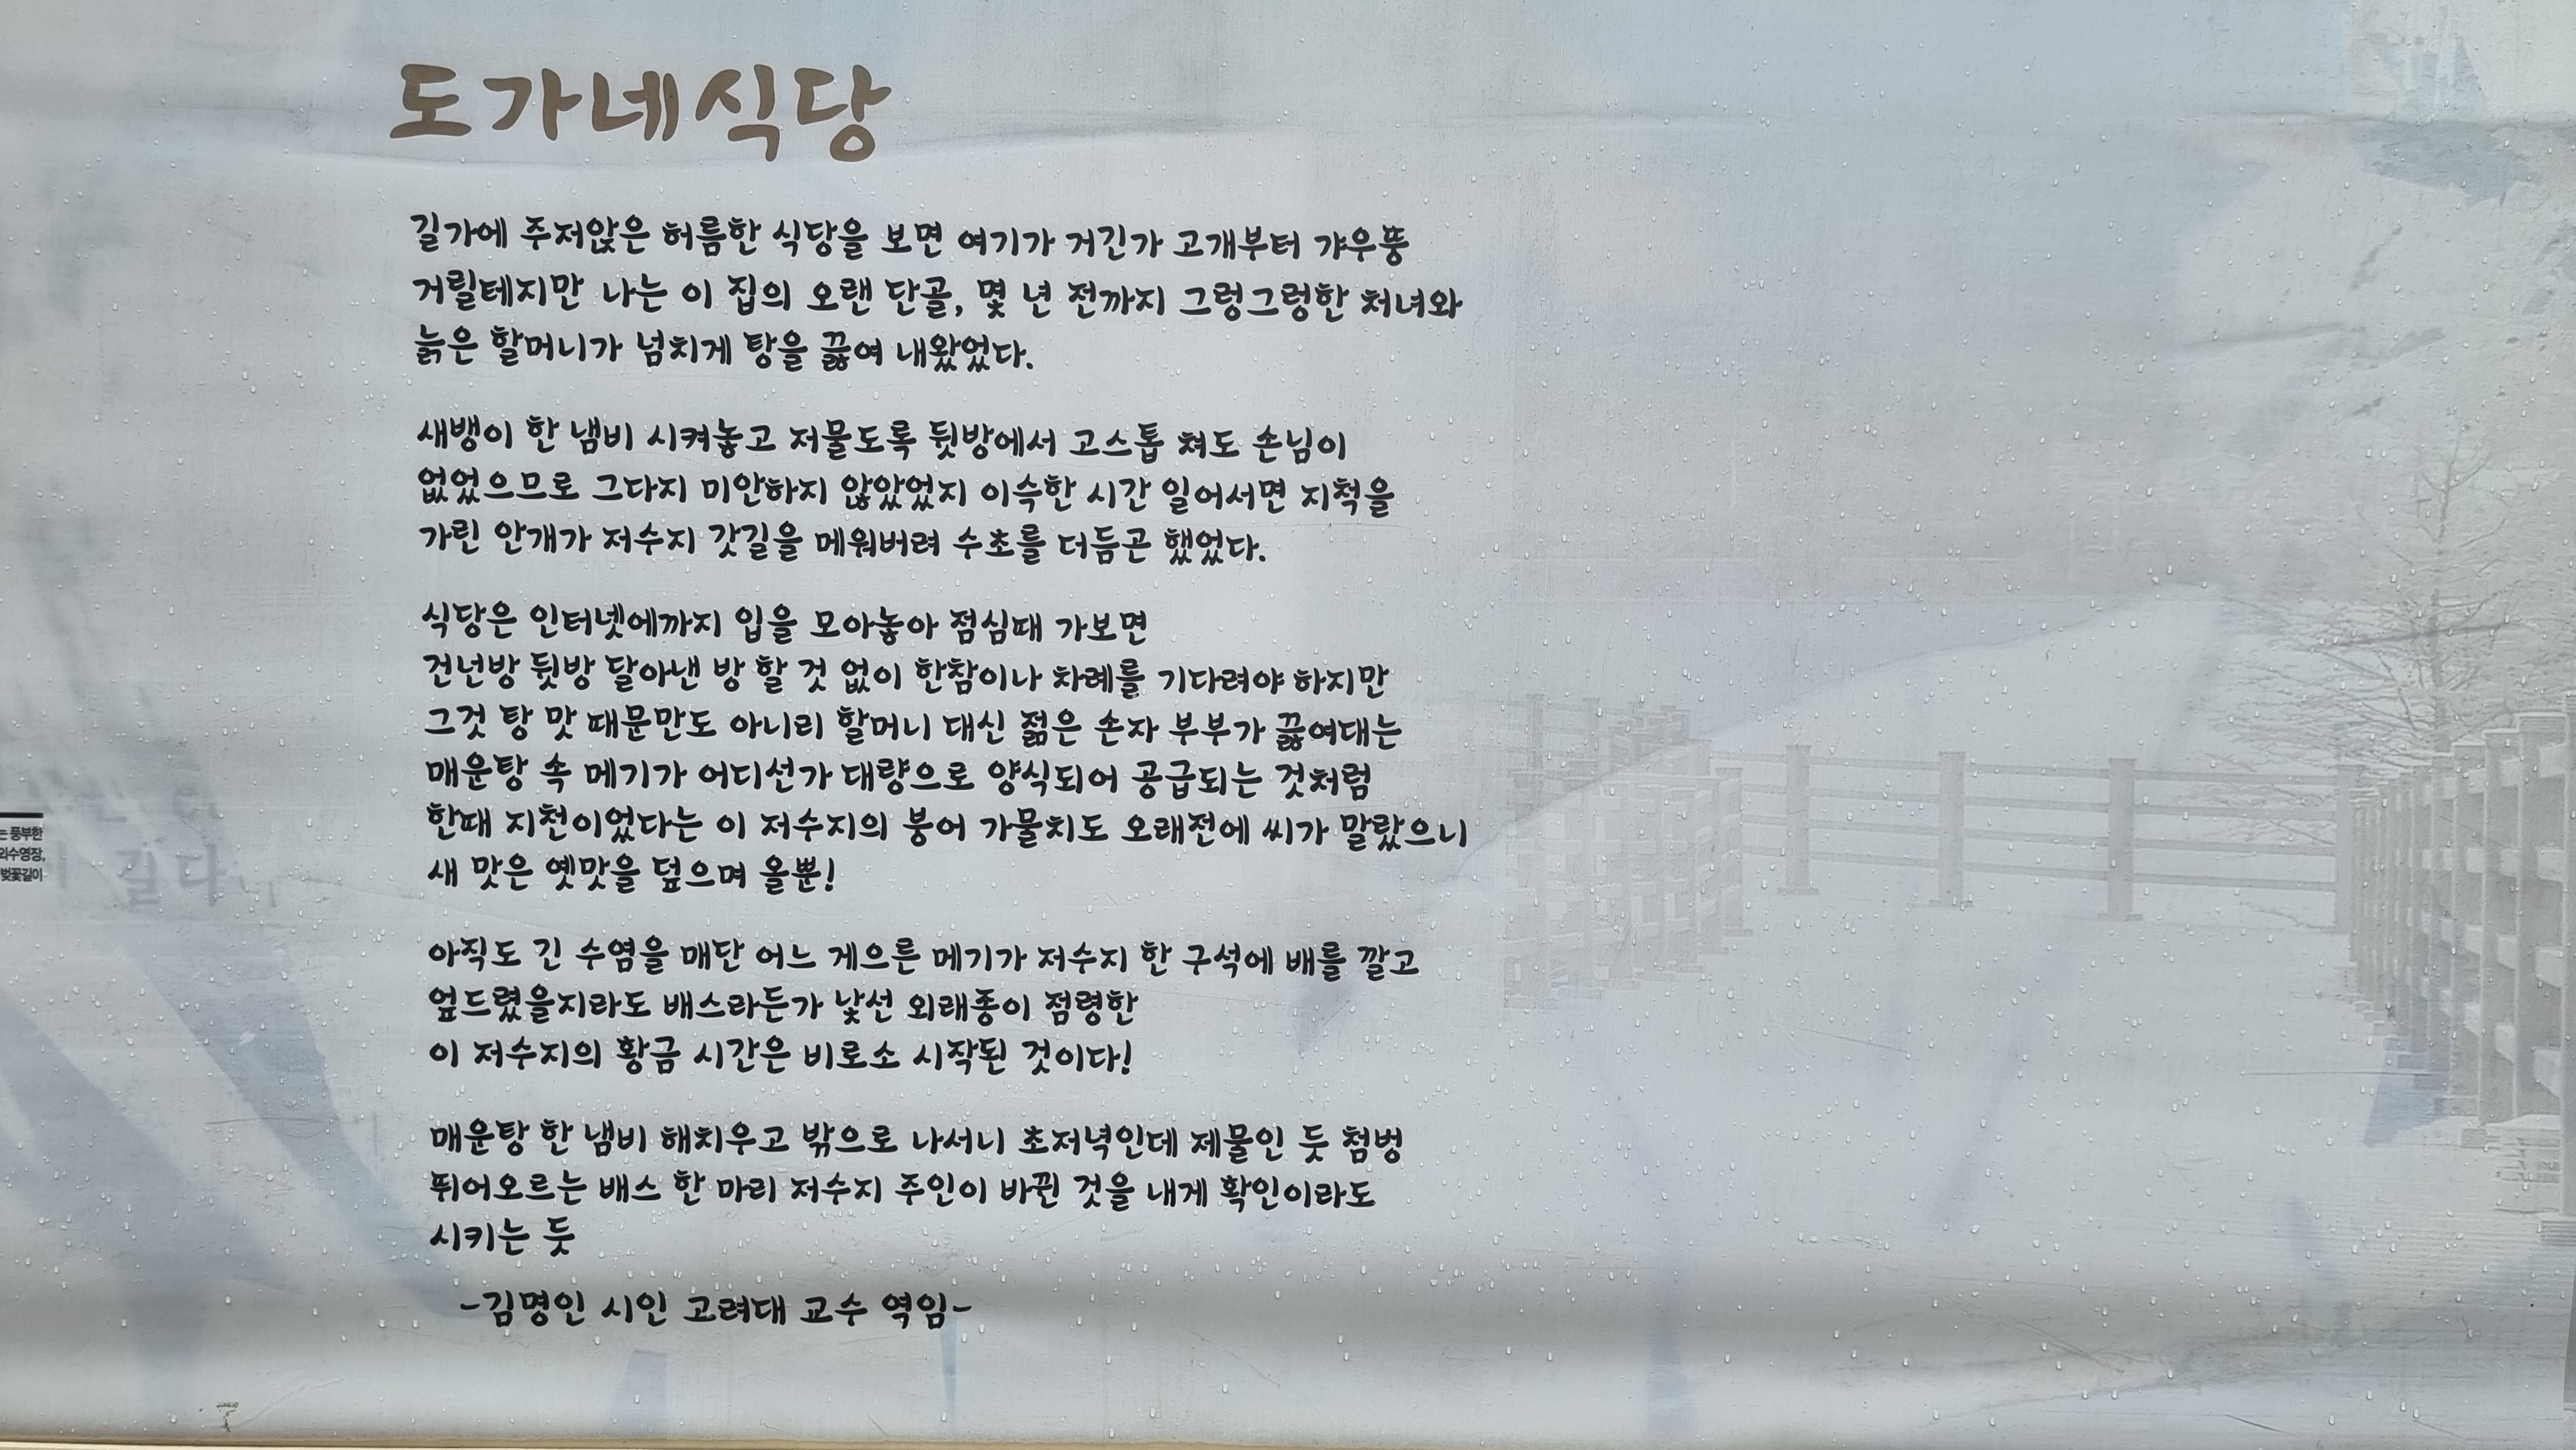 도가네식당
길가에 주저앉은 허름한 식당을 보면 여기가 거긴가 고개부터 갸우뚱
거릴테지만 나는 이 집의 오랜 단골, 몇 년 전까지 그렁그렁한 처녀와
늙은 할머니가 넘치게 탕을 끓여 내왔었다.
새뱅이 한 냄비 시켜놓고 저물도록 뒷방에서 고스톱 쳐도 손님이
없었으므로 그다지 미안하지 않았었지 이슥한 시간 일어서면 지척을
가린 안개가 저수지 갓길을 메워버려 수초를 더듬곤 했었다.
식당은 인터넷에까지 입을 모아놓아 점심때 가보면
건넌방 뒷방 달아낸 방 할 것 없이 한참이나 차례를 기다려야 하지만
그것 탕 맛 때문만도 아니리 할머니 대신 젊은 손자 부부가 끓여대는
매운탕 속 메기가 어디선가 대량으로 양식되어 공급되는 것처럼
한때 지천이었다는 이 저수지의 붕어 가물치도 오래전에 씨가 말랐으니
새 맛은 옛맛을 덮으며 올뿐!
아직도 긴 수염을 매단 어느 게으른 메기가 저수지 한 구석에 배를 깔고
엎드렸을지라도 배스라든가 낯선 외래종이 점령한
이 저수지의 황금 시간은 비로소 시작된 것이다!
매운탕 한 냄비 해치우고 밖으로 나서니 초저녁인데 제물인 듯 첨벙
뛰어오르는 배스 한 마리 저수지 주인이 바뀐 것을 내게 확인이라도
시키는 듯
-김명인 시인 고려대 교수 역임-
는 풍부한
외수영장,
벚꽃길이
길다